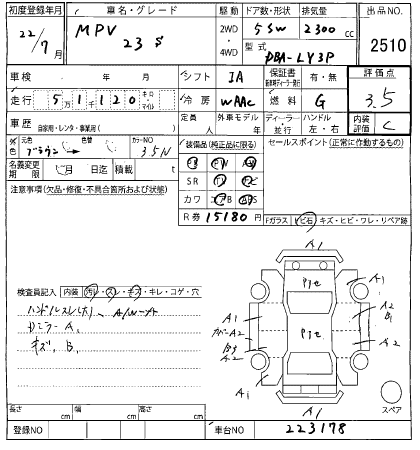 初度登録年月 車名・グレード 駆動 ドア数・形状 排気量 出品NO
22/7月 MPV 23S 2WD・4WD 5 SW 2300cc 2510
型式 DBA-LY3P
車検 年 月 シフト IA 保証書 有・無 評価点
走行 51120 キロ・マイル 冷房 WAAC 燃料 G 3.5
車歴 自家用・レンタ・事業用( ) 定員 人 外車モデル 年 ディーラー・並行 ハンドル 左・右 内装評価 C
外色 元色 ブラウン 色替 カラーNO 35N 装備品(純正品に限る) セールスポイント(正常に作動するもの)
名義変更期限 月 日迄 積載 t PS PW
SR TV ナビ
注意事項(欠品・修復・不具合箇所および状態) カワ エアB ABS
R券 15180円
Fガラス トビ石 キズ・ヒビ・ワレ・リペア跡
検査員記入 内装 汚レ・スレ・キズ・キレ・コゲ・穴
ハンドルスレ(大)
DミラーA1
キズ、B1
A1
Pte
A1
A1
A2
B1
カバーA2
Pte
B3
A2
A2
A1
A1
スペア
長さ cm 幅 cm 高さ cm
登録NO 車台NO 223178